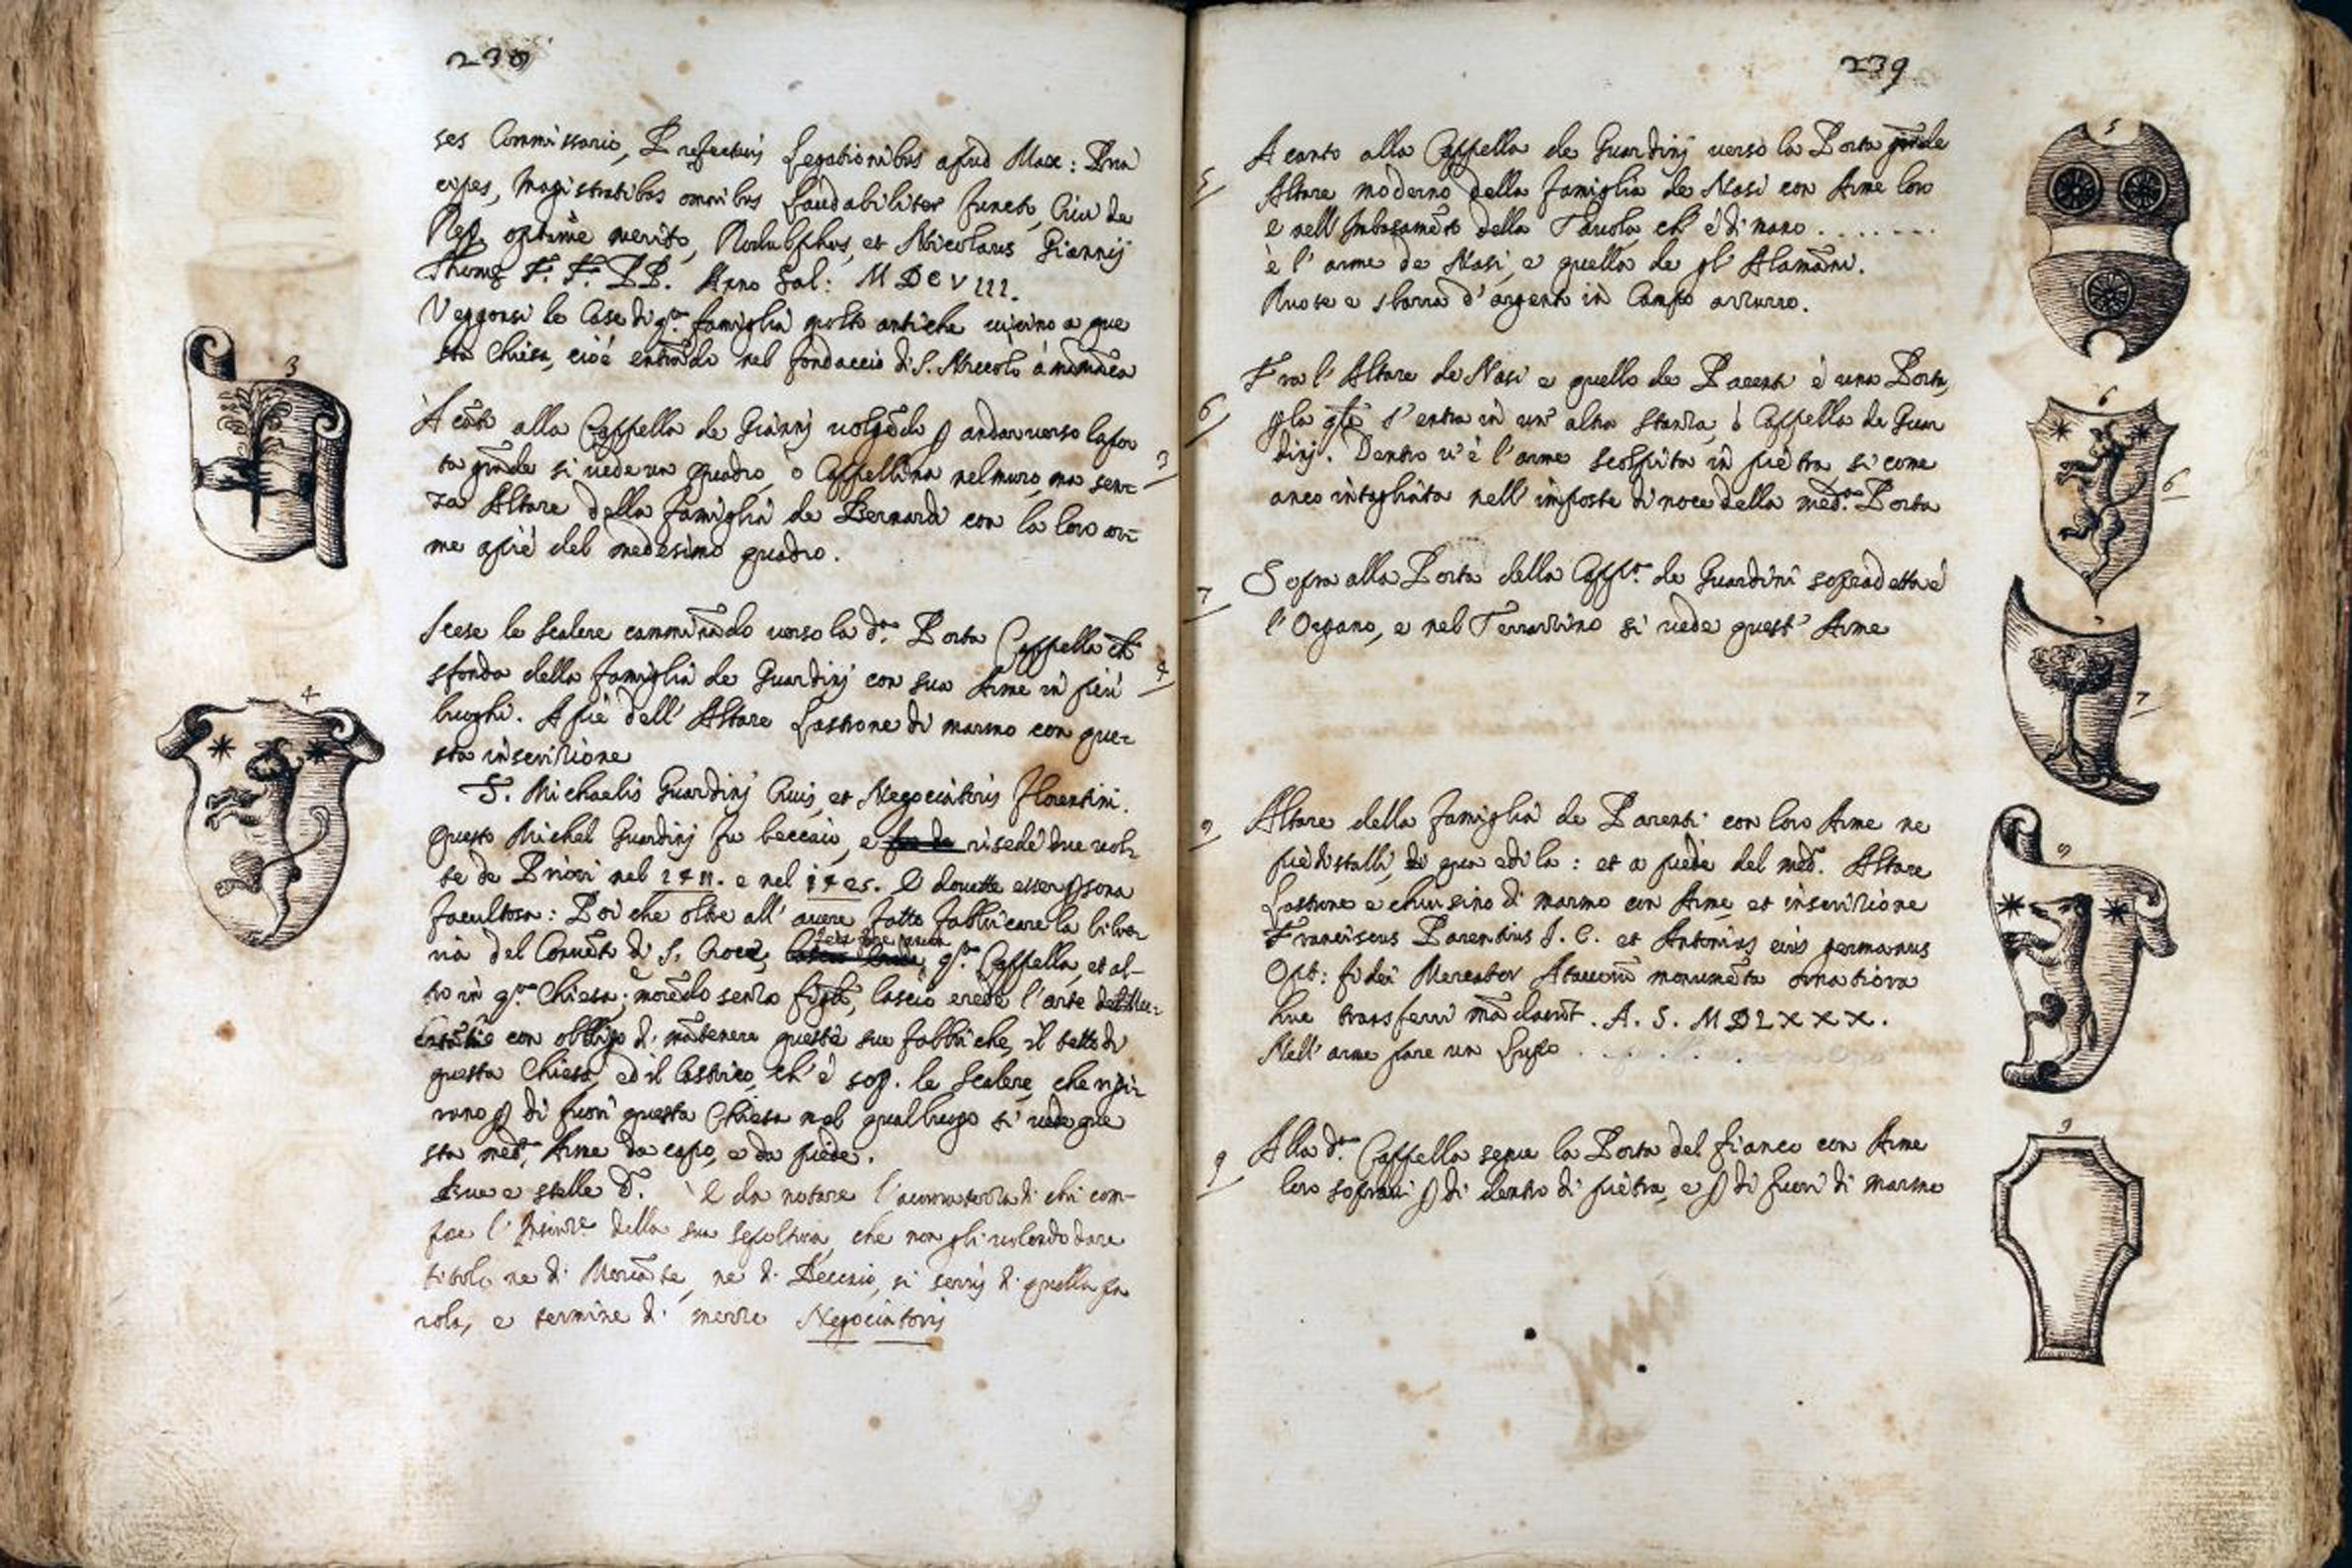 238
ses Commissario, Prefectus Legationibus apud Max: Prin
cipes, Magistratibus omnibus laudabiliter funct, Civi de
Rep. optimè merito, Rodulphus, et Nicolaus Giannij
Thomę F. F. PP. Anno Sal: MDCVIII.
Veggonsi le Case di q.ta famiglia molto antiche vicino a que
sta Chiesa, cioè entrando nel fondaccio di S. Niccolò à
3
A cãto alla Cappella de Giannj volgẽdo p andar verso la por
ta grãde si vede un quadro, ò Cappellina nel muro, ma sen=
za Altare della famiglia de Bernardi con la loro ar=
me a piè del medesimo quadro.
3
Scese le Scalere camminãdo verso la d.a Porta Cappella ch
sfonda della famiglia de Guardinj con sua Arme in più
luoghi. A piè dell' Altare Lastrone di marmo con que=
sta inscrizione
4
4
S. Michaelis Guardinj Civis, et Negociatoris Florentini.
Questo Michel Guardinj fu beccaio, e risedè due vol=
te de Priori nel 1411. e nel 1425. E dovette esser psona
facultosa: Poi che oltre all' avere fatto fabbricare la libre
ria del Convẽto di S. Croce, q.ta Cappella, et al=
tro in q.ta Chiesa; morẽdo senza figli, lasciò erede l'arte
con obbligo di mãtenere queste sue fabbriche, il tetto di
questa Chiesa, ed il lastrico, ch'è sop. le Scalere, che
rono p di fuori questa Chiesa nel qual luogo si vede que
sta med.a Arme da capo, e da piede.
e stelle d. E da notare l'accuratezza di chi com=
pose l'Inscriz.e della sua sepoltura, che non gli volendo dare
titolo ne di Mercãte, ne di Beccaio, si servì di quella pa
rola, e termine di mezzo Negociatoris
239
5
A canto alla Cappella de Guardinj verso la Porta grãde
Altare moderno della famiglia de Nasi con Arme loro
e nell' Imbasamẽto della Tavola, ch' è di mano . . . . . . .
è l' arme de Nasi, e quella de gl' Alamãni.
Ruote e sbarra d'argento in Campo azzurro.
5
Fra l' Altare de Nasi e quello de Parenti è una Porta,
p la qle s' entra in un' altra stanza, ò Cappella de Guar
dinj. Dentro v' è l' arme scolpita in pietra si come
anco intagliata nell' imposte di noce della med.a Porta
6
6
6
Sopra alla Porta della Capp.a de Guardini sopradetta è
l'Organo, e nel Terrazzino si vede quest' Arme
7
7
7
Altare della famiglia de Parenti con loro Arme ne
piedistalli, di qua e di la: et a piede del med. Altare
Lastrone e chiusino di marmo con Arme, et inscrizione
Franciscus Parentius I. C. et Antonius eius germanus
Opt: fidei Mercator Atavorũ monumẽta ornatiora
huc transferri mãdarũt. A. S. MDLXXX.
Nell' arme pare un Lupo
Alla d.a Cappella segue la Porta del fianco con Arme
loro sopravi p di dentro di pietra, e p di fuori di marmo
9
9